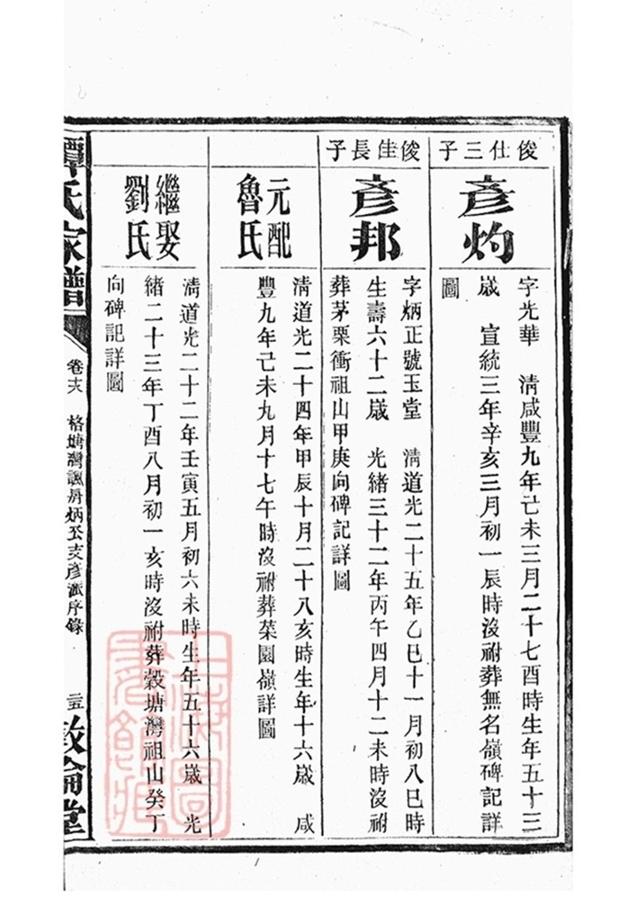 俊仕三子
彥灼
字光華 清咸豐九年己未三月二十七酉時生年五十三
歲 宣統三年辛亥三月初一辰時沒祔葬無名嶺碑記詳
圖
俊佳長子
彥邦
字炳正號玉堂 清道光二十五年乙巳十一月初八巳時
生壽六十二歲 光緒三十二年丙午四月十二未時沒祔
葬茅栗衝祖山甲庚向碑記詳圖
元配
魯氏
清道光二十四年甲辰十月二十八亥時生年十六歲 咸
豐九年己未九月十七午時沒祔葬菜園嶺詳圖
繼娶
劉氏
清道光二十二年壬寅五月初六未時生年五十六歲 光
緒二十三年丁酉八月初一亥時沒祔葬穀塘灣祖山癸丁
向碑記詳圖
譚氏家譜
格塘灣 房炳公支彥派序錄
敦倫堂